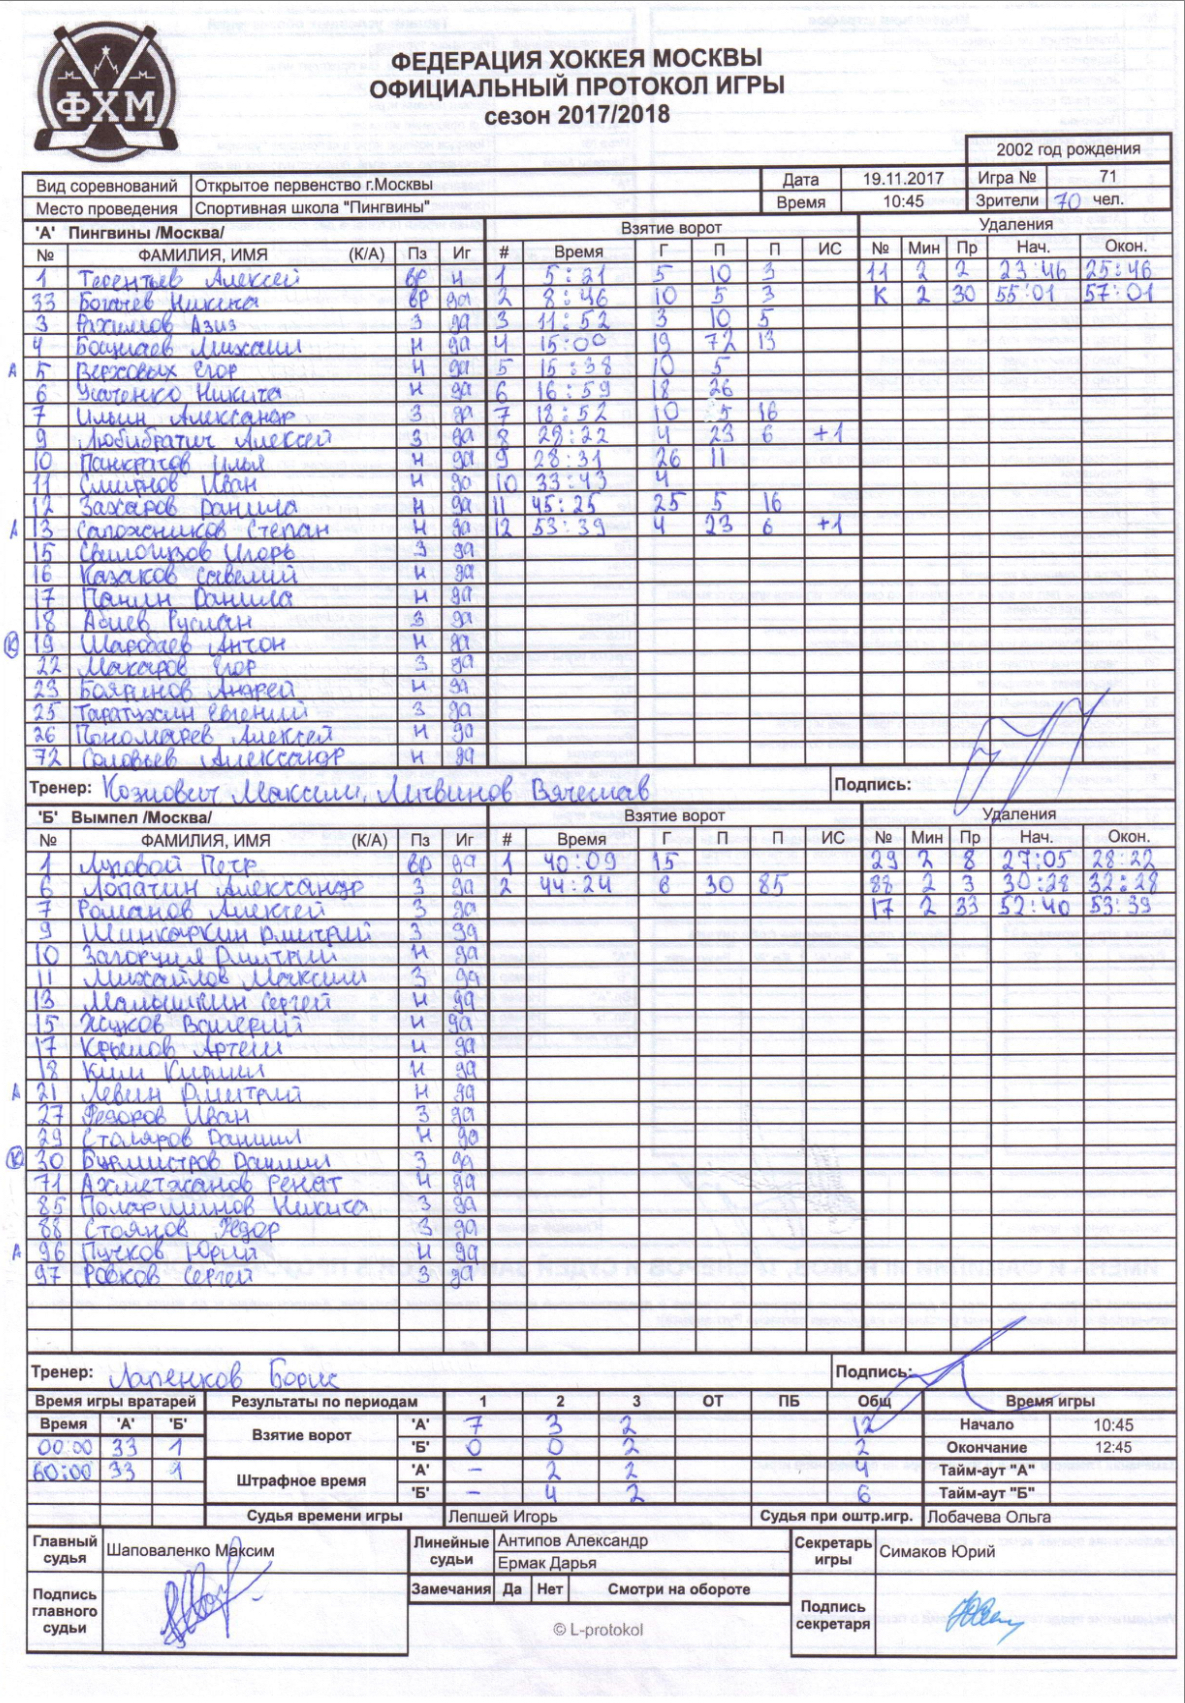 ФХМ
ФЕДЕРАЦИЯ ХОККЕЯ МОСКВЫ
ОФИЦИАЛЬНЫЙ ПРОТОКОЛ ИГРЫ
сезон 2017/2018
2002 год рождения
Вид соревнований Открытое первенство г.Москвы Дата 19.11.2017 Игра № 71
Место проведения Спортивная школа "Пингвины" Время 10:45 Зрители 70 чел.
'А' Пингвины /Москва/ Взятие ворот Удаления
№ ФАМИЛИЯ, ИМЯ (К/А) Пз Иг # Время Г П П ИС № Мин Пр Нач. Окон.
1 Терентьев Алексей вр н 1 5:21 5 10 3 11 2 2 23:46 25:46
33 Богачев Никита вр да 2 8:46 10 5 3 К 2 30 55:01 57:01
3 Рахимов Азиз З да 3 11:52 3 10 5
4 Михаил Н да 4 15:00 19 72 13
А 5 Верховых Егор Н да 5 15:38 10 5
6 Усатенко Никита Н да 6 16:59 18 26
7 Ильин Александр З да 7 18:52 10 5 16
9 Любибратич Алексей З да 8 29:22 4 23 6 +1
10 Панкратов Илья Н да 9 28:31 26 11
11 Смирнов Иван Н да 10 33:43 4
12 Захаров Данила Н да 11 45:25 25 5 16
А 13 Сапожников Степан Н да 12 53:39 4 23 6 +1
15 Игорь З да
16 Казаков Савелий Н да
17 Панин Данила Н да
18 Абиев Руслан З да
К 19 Шарабаев Антон Н да
22 Макаров Егор З да
23 Бояринов Андрей Н да
25 Таратухин Евгений З да
26 Пономарев Алексей Н да
72 Соловьев Александр Н да
Тренер: Козлович Максим, Литвинов Вячеслав Подпись:
'Б' Вымпел /Москва/ Взятие ворот Удаления
№ ФАМИЛИЯ, ИМЯ (К/А) Пз Иг # Время Г П П ИС № Мин Пр Нач. Окон.
1 Луговой Петр вр да 1 40:09 15 29 2 8 27:05 28:22
6 Лопатин Александр З да 2 44:24 6 30 85 88 2 3 30:28 32:28
7 Романов Алексей З да 17 2 33 52:40 53:39
9 Шинкаркин Дмитрий З да
10 Дмитрий Н да
11 Михайлов Максим З да
13 Малышкин Сергей Н да
15 Жуков Валерий Н да
17 Крылов Артем Н да
18 Ким Кирилл Н да
А 21 Левин Дмитрий Н да
27 Федоров Иван З да
29 Столяров Даниил Н да
К 30 Бурмистров Даниил З да
71 Ахметжанов Ренат Н да
85 Никита З да
88 Стоянов Федор З да
А 96 Пучков Юрий Н да
97 Ровков Сергей З да
Тренер: Лапенков Борис Подпись:
Время игры вратарей Результаты по периодам 1 2 3 ОТ ПБ Общ Время игры
Время 'А' 'Б' Взятие ворот 'А' 7 3 2 12 Начало 10:45
00:00 33 1 'Б' 0 0 2 2 Окончание 12:45
60:00 33 1 Штрафное время 'А' – 2 2 4 Тайм-аут "А"
'Б' – 4 2 6 Тайм-аут "Б"
Судья времени игры Лепшей Игорь Судья при оштр.игр. Лобачева Ольга
Главный судья Шаповаленко Максим Линейные судьи Антипов Александр Секретарь игры Симаков Юрий
Ермак Дарья
Подпись главного судьи Замечания Да Нет Смотри на обороте Подпись секретаря
© L-protokol